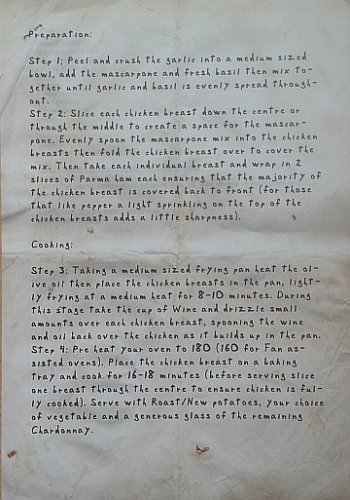 Preparation:
Step 1; Peel and crush the garlic into a medium sized
bowl, add the mascarpone and fresh basil then mix to-
gether until garlic and basil is evenly spread through-
out.
Step 2: Slice each chicken breast down the centre or
through the middle to create a space for the mascar-
pone. Evenly spoon the mascarpone mix into the chicken
breasts then fold the chicken breast over to cover the
mix. Then take each individual breast and wrap in 2
slices of Parma ham each ensuring that the majority of
the chicken breast is covered back to front (for those
that like pepper a light sprinkling on the top of the
chicken breasts adds a little sharpness).
Cooking:
Step 3: Taking a medium sized frying pan heat the ol-
ive oil then place the chicken breasts in the pan, light-
ly frying at a medium heat for 8-10 minutes. During
this stage take the cup of Wine and drizzle small
amounts over each chicken breast, spooning the wine
and oil back over the chicken as it builds up in the pan.
Step 4: Pre heat your oven to 180 (160 for Fan as-
sisted ovens). Place the chicken breast on a baking
tray and cook for 16-18 minutes (before serving slice
one breast through the centre to ensure chicken is ful-
ly cooked). Serve with Roast/New potatoes, your choice
of vegetable and a generous glass of the remaining
Chardonnay.